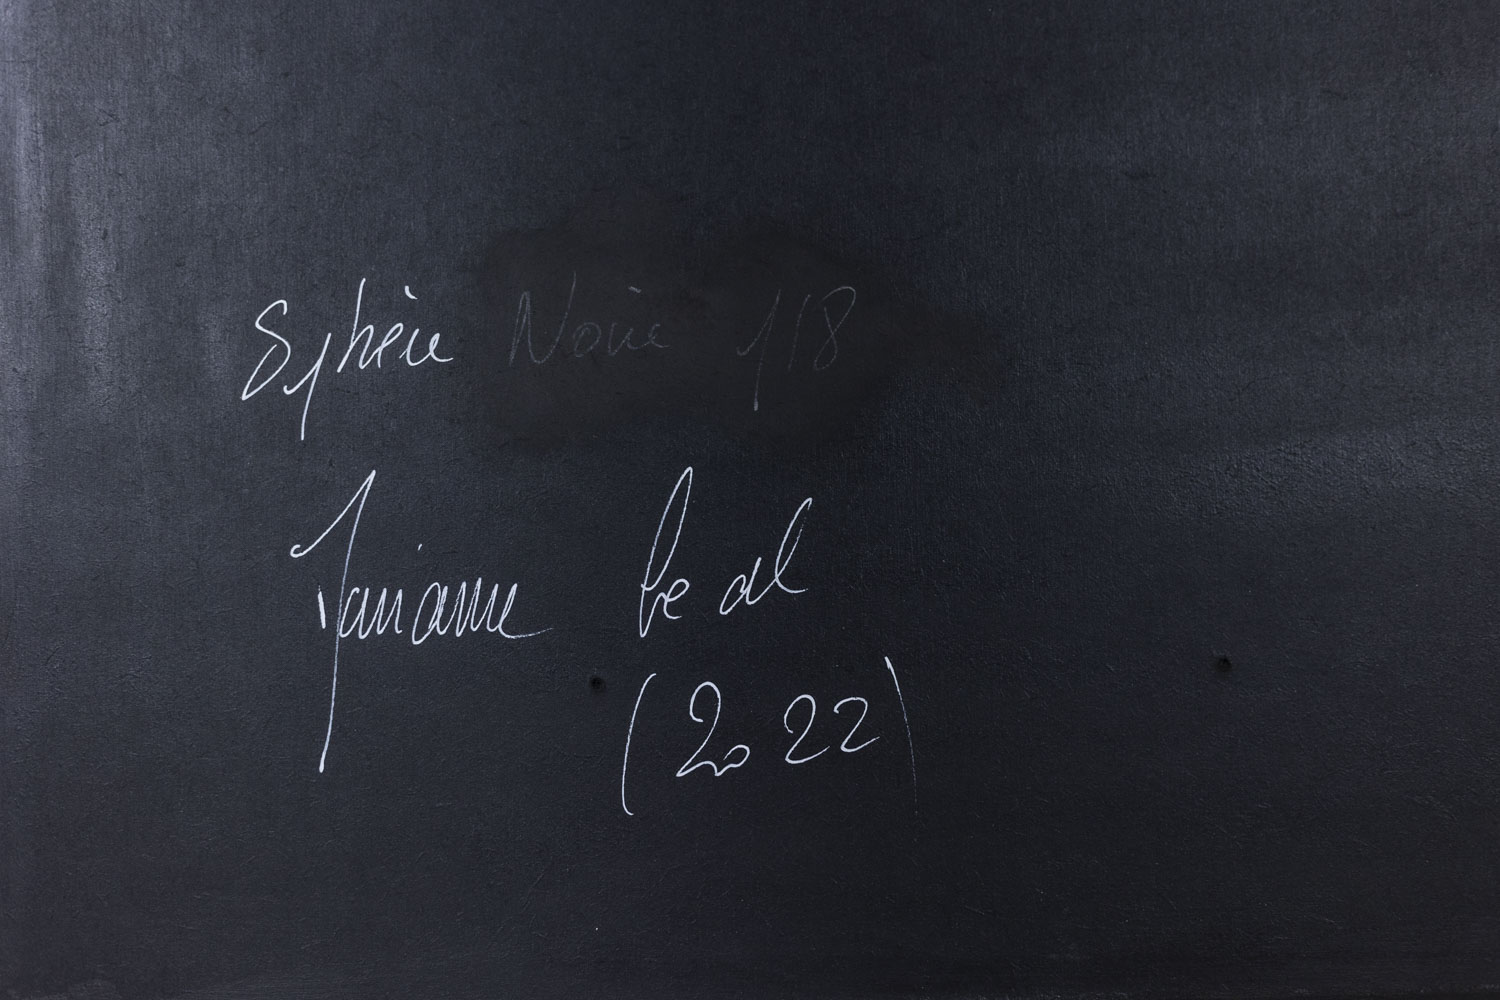 Sphère Noire 1/8
Marianne Leal
(2022)